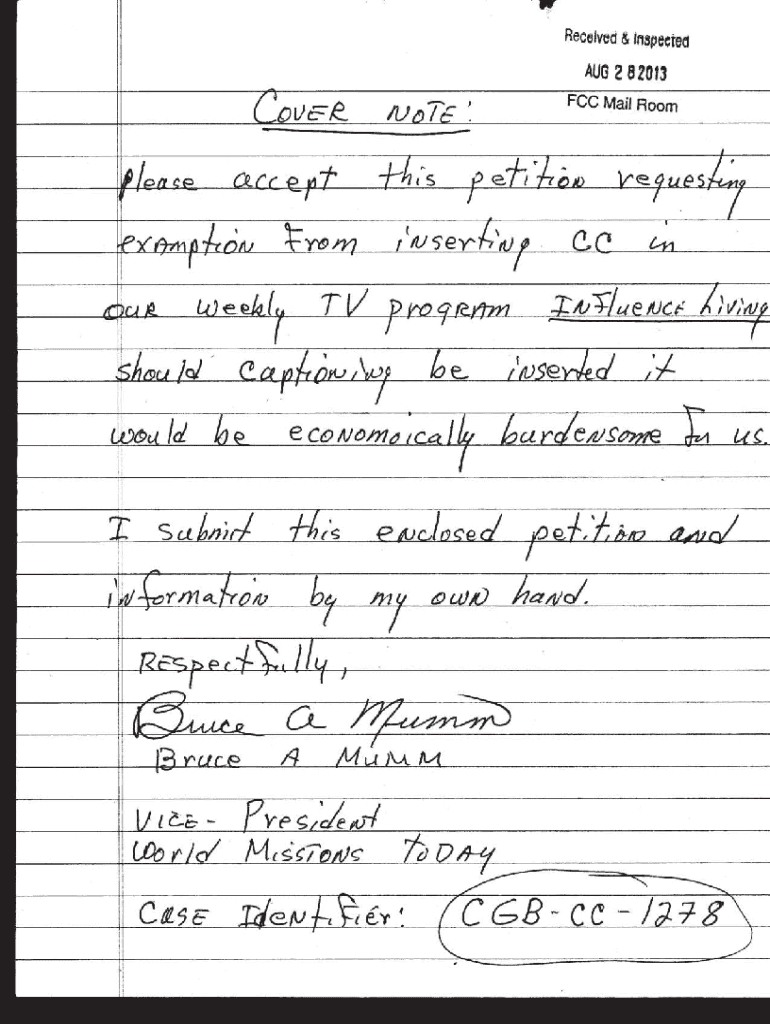 Received & Inspected
AUG 28 2013
FCC Mail Room
COVER NOTE:
Please accept this petition requesting
examption from inserting CC in
our weekly TV program INFluENCE Living
should captioning be inserted it
would be economoically burdensome for us.
I submit this enclosed petition and
information by my own hand.
RESpectfully,
Bruce A Mumm
Bruce A MuMM
VICE- President
World MissioNs ToDAY
CASE IdeNtifiEr: CGB-CC-1278